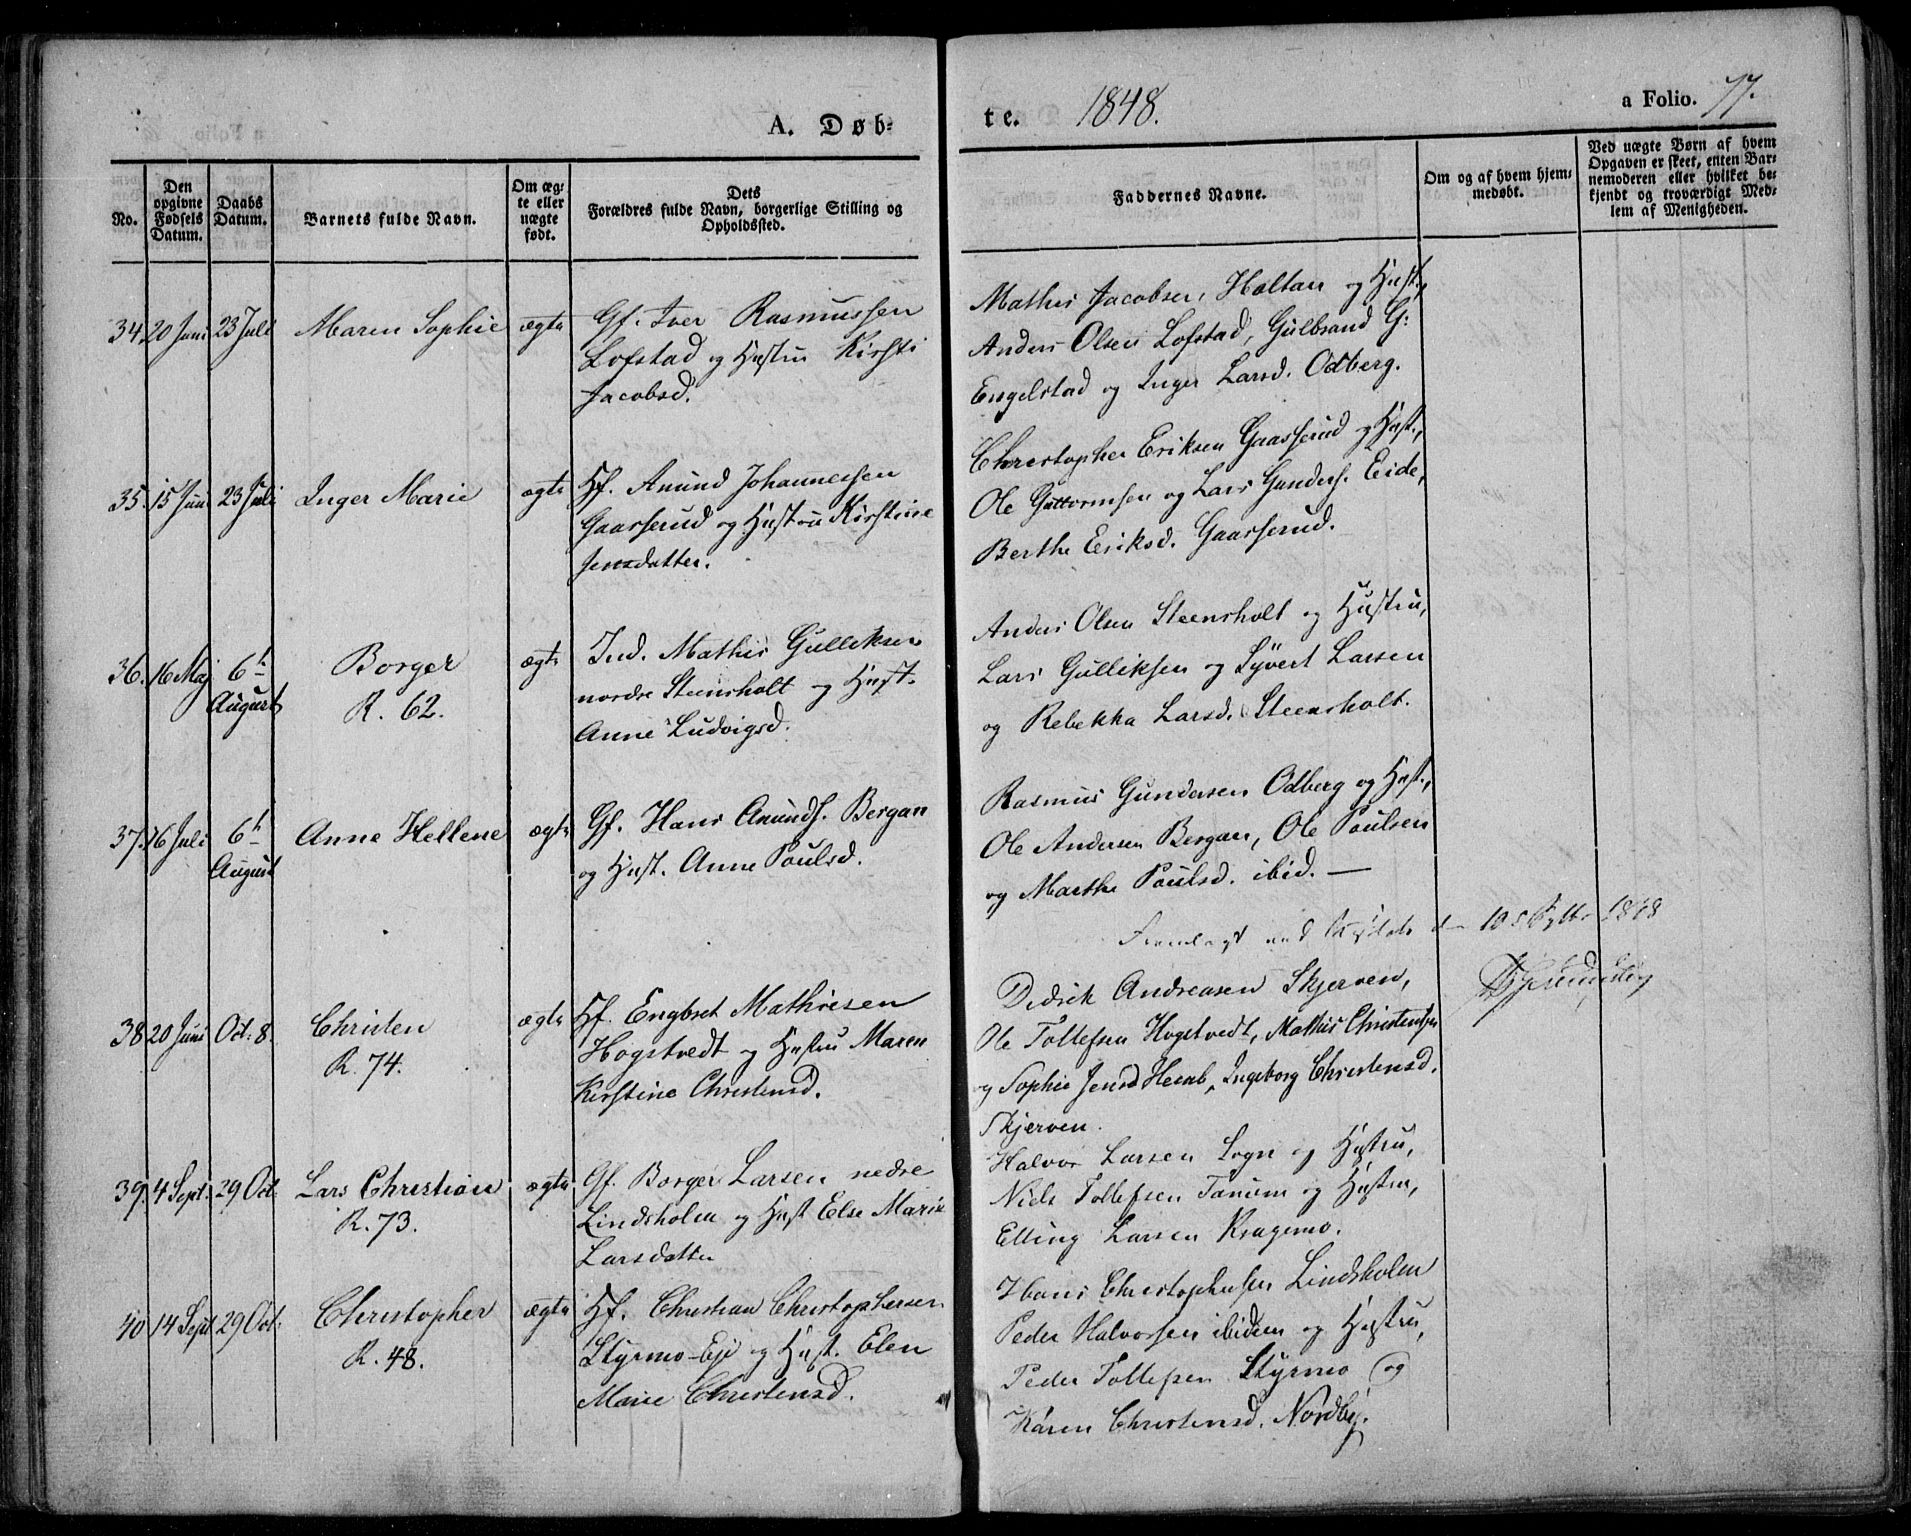 A. Døb-
te. 1848.
a Folio. 77.
No.
Den opgivne Fødsels Datum.
Daabs Datum.
Barnets fulde Navn.
Om ægte eller uægte født.
Dets
Forældres fulde Navn, borgerlige Stilling og Opholdssted.
Faddernes Navne.
Om og af hvem hjemmedøbt.
Ved uægte Børn af hvem
Opgaven er skeet, enten Bar-
nemoderen eller hvilket be-
kjendt og troværdigt Med-
lem af Menigheden.
34. 20 Juni 23 Juli Maren Sophie ægte
Gf. Iver Rasmussen
Lofstad og Hustru Kirsti
Jacobsd.
Mathis Jacobsen, Holtan og Hust.,
Anders Olsen Lofstad, Gulbrand G:
Engelstad og Inger Larsd. Odberg.
35. 15 Juni 23 Juli Inger Marie ægte
Hf. Anund Johannessen
Gaasserud og Hustru Kirstine
Jensdatter.
Christopher Eriksen Gaasserud og Hust.,
Ole Guttormsen og Lars Gunders. Eide,
Berthe Eriksd. Gaasserud.
36. 16 Maj 6te August Borger ægte
R. 62.
Ind. Mathis Gulliksen
nordre Steensholt og Hust.
Anne Ludvigsd.
Anders Olsen Steensholt og Hustru,
Lars Gulliksen og Syvert Larsen
og Rebekka Larsd. Steensholt.
37. 16 Juli 6te August Anne Hellene ægte
Gf. Hans Anunds. Bergan
og Hust. Anne Poulsd.
Rasmus Gundersen Odberg og Hust.,
Ole Andersen Bergan, Ole Poulsen
og Marthe Poulsd. ibid. —
Fremlagt ved 10 1848
38 20 Juni Oct: 8. Christen ægte
R. 74.
Hf. Engbret Mathisen
Hogstvedt og Hustru Maren
Kirstine Christensd.
Didrik Andreasen Skjerven,
Ole Tollefsen Hogstvedt, Mathis Christensen
og Sophie Jensd Heum, Ingeborg Christensd.
Skjerven.
39. 4 Sept. 29 Oct Lars Christian ægte
R. 73.
Gf. Borger Larsen nedre
Lindsholm og Hust Else Marie
Larsdatter
Halvor Larsen Sogn og Hustru,
Niels Tollefsen Tanum og Hustru,
Elling Larsen Kragemo.
40 14 Sept 29 Oct: Christopher ægte
R. 48.
Hf. Christian Christophersen
Styrmo-Eje og Hust. Elen
Marie Christensd.
Hans Christophersen Lindsholm
Peder Halvorsen ibidem og Hustru,
Peder Tollefsen Styrmo og
Karen Christensd. Nordby.